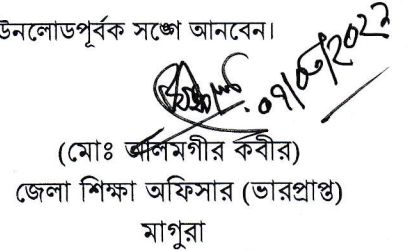 উনলোডপূর্বক সঙ্গে আনবেন।
(মোঃ আলমগীর কবীর)
জেলা শিক্ষা অফিসার (ভারপ্রাপ্ত)
মাগুরা